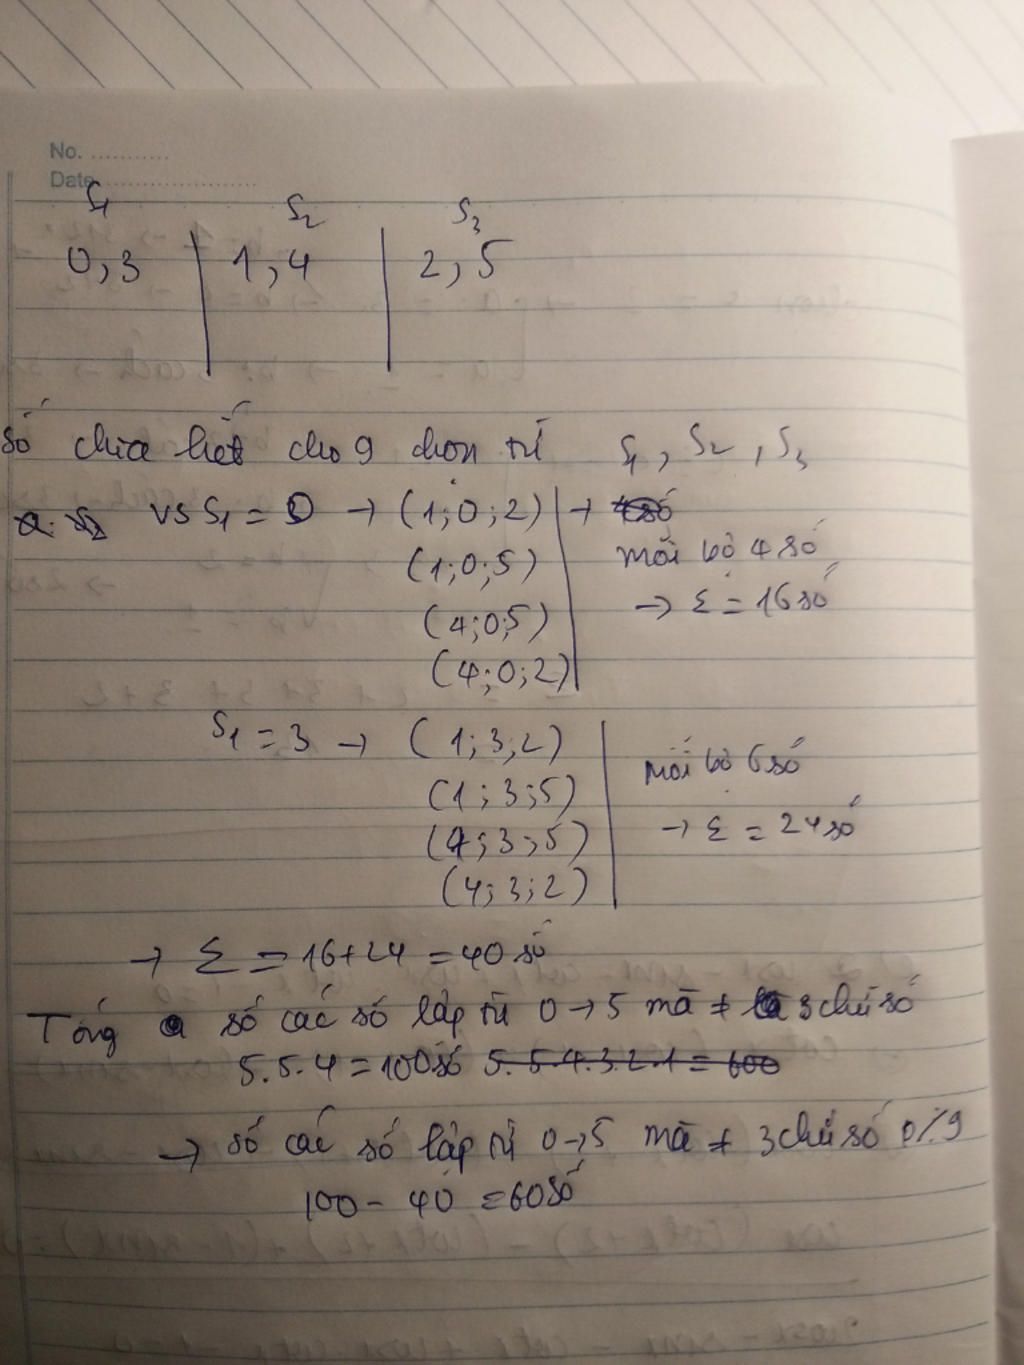 No. ...........
Date ........................
S1 S2 S3
0,3 | 1,4 | 2,5
Số chia hết cho 9 chọn từ S1, S2, S3
vs S1 = 0 → (1;0;2) →
(1;0;5) mỗi bộ 4 số
(4;0;5) → Σ = 16 số
(4;0;2)
S1 = 3 → (1;3;2)
(1;3;5) mỗi bộ 6 số
(4;3;5) → Σ = 24 số
(4;3;2)
→ Σ = 16+24 = 40 số
Tổng số các số lập từ 0→5 mà ≠ 3 chữ số
5.5.4 = 100 số 5.5.4.3.2.1 = 600
→ số các số lập từ 0→5 mà ≠ 3 chữ số 0⁒9
100 - 40 = 60 số